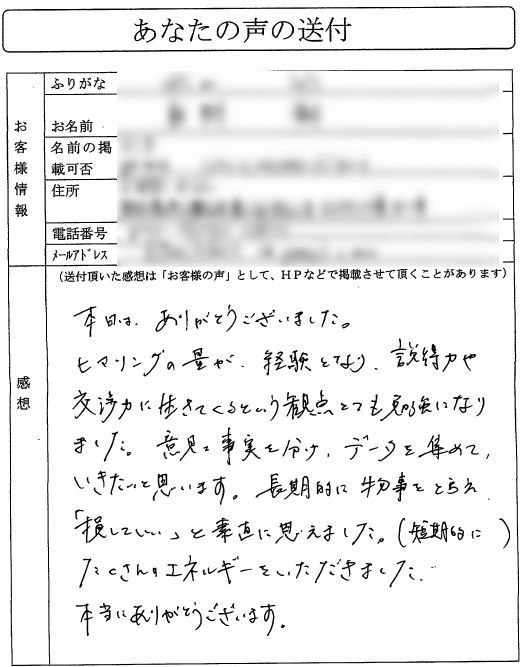 あなたの声の送付
お客様情報
ふりがな
お名前
名前の掲
載可否
住所
電話番号
ﾒｰﾙｱﾄﾞﾚｽ
(送付頂いた感想は「お客様の声」として、ＨＰなどで掲載させて頂くことがあります)
感想
本日は、ありがとうございました。
ヒヤリングの量が、経験となり、説得力や
交渉力に生きてくるという観点とても勉強になり
ました。意見と事実を分け、データを集めて、
いきたいと思います。長期的に物事をとらえ
「損していい」と素直に思えました。(短期的に)
たくさんのエネルギーをいただきました。
本当にありがとうございます。